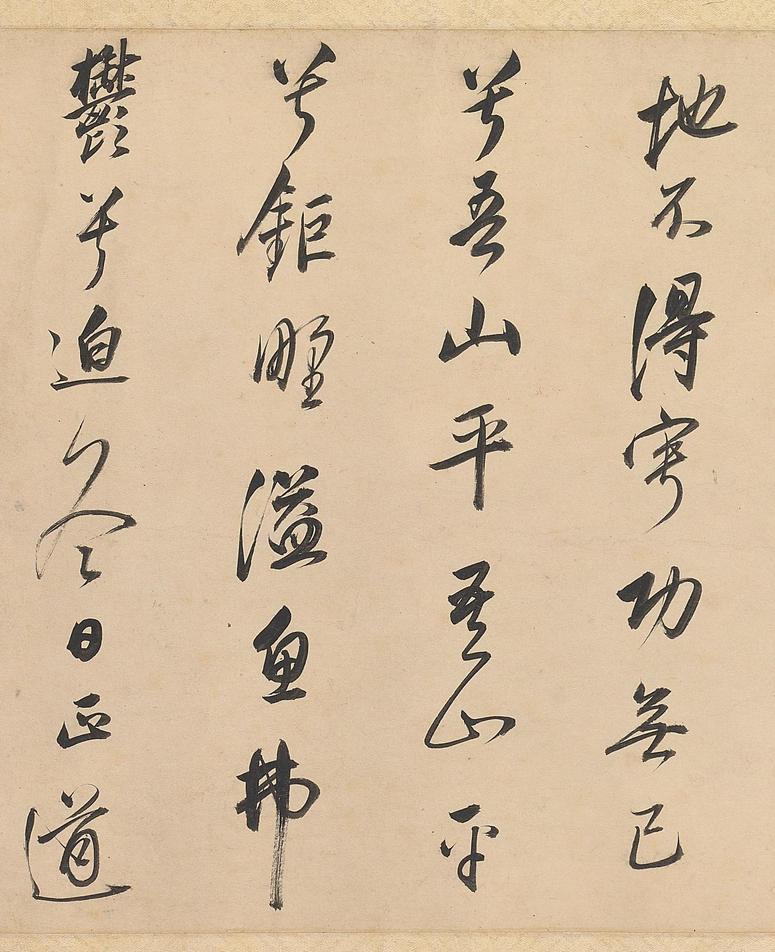 地不得寧功無已
兮吾山平吾山平
兮鉅野溢魚拂
鬱兮迫冬日正道